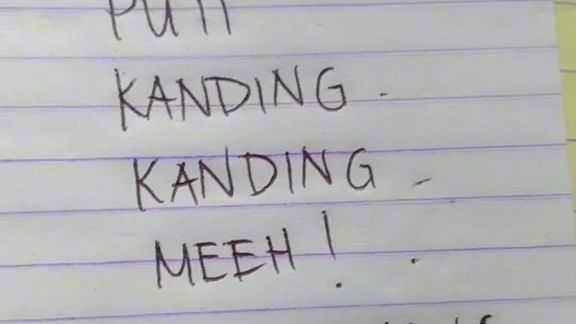 KANDING -
KANDING -
MEEH!